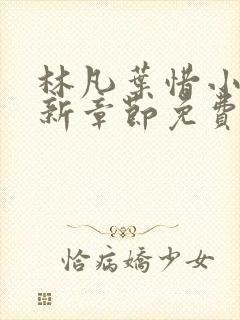 林凡葉惜小
新章節免費
恰病嬌少女